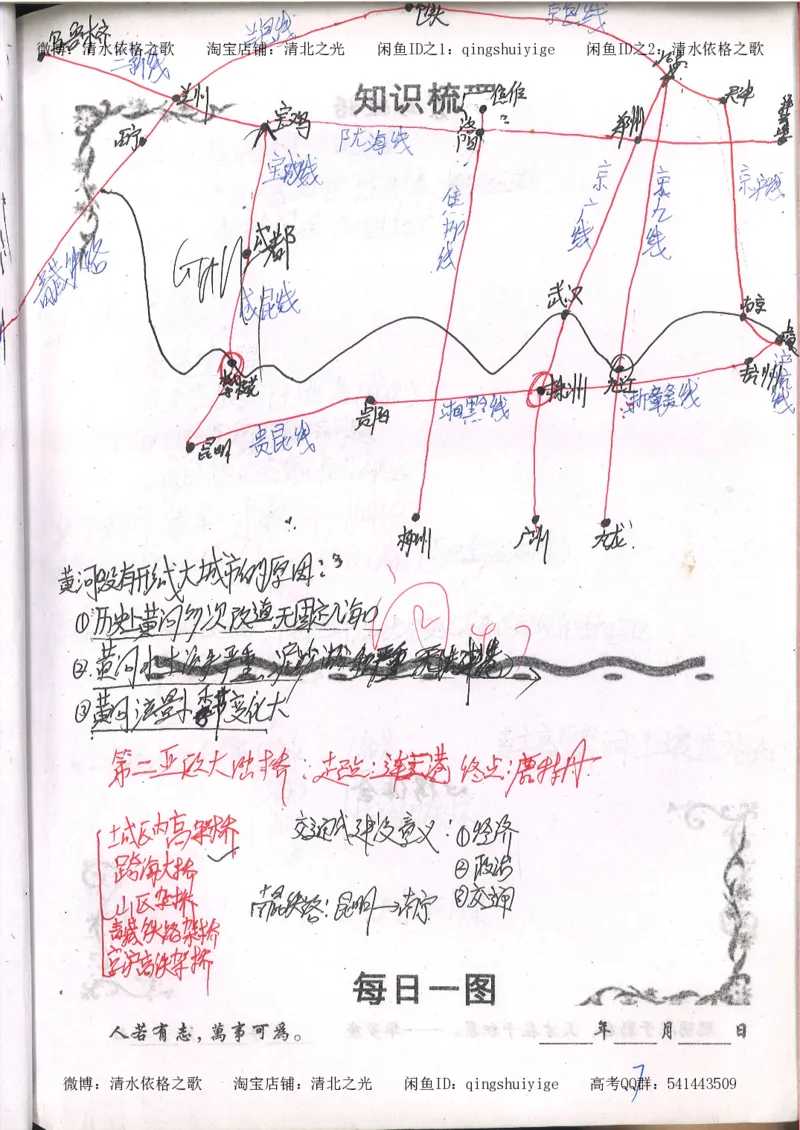 包头
兰包线
京包线
乌鲁木齐
微博：清水依格之歌 淘宝店铺：清北之光 闲鱼ID之1：qingshuiyige 闲鱼ID之2：清水依格之歌
兰新线
北京
知识梳理
兰州
天津
宝鸡
郑州
西宁
陇海线
宝成线
京广线
京九线
京沪线
焦柳线
成都
青藏铁路
成昆线
武汉
南京
株洲
九江
贵阳
湘黔线
浙赣线
昆明
贵昆线
柳州
广州
九龙
黄河没有形成大城市的原因：
①历史上黄河多次改道无固定入海口
②黄河水土流失严重，泥沙淤积严重
③黄河流量小季节变化大
第二亚欧大陆桥：起点：连云港 终点：鹿特丹
城区内高架桥
跨海大桥
山区架桥
青藏铁路架桥
京沪高铁架桥
交通线建设意义：①经济
②政治
③交通
南昆铁路：昆明→南宁
每日一图
人若有志，萬事可為。
年 月 日
微博：清水依格之歌 淘宝店铺：清北之光 闲鱼ID：qingshuiyige 高考QQ群：541443509